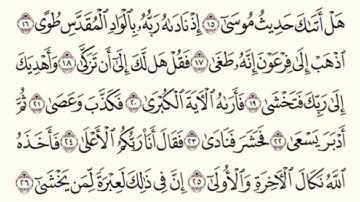 هَلْ أَتَىٰكَ حَدِيثُ مُوسَىٰٓ ١٥ إِذْ نَادَىٰهُ رَبُّهُۥ بِٱلْوَادِ ٱلْمُقَدَّسِ طُوًى ١٦
ٱذْهَبْ إِلَىٰ فِرْعَوْنَ إِنَّهُۥ طَغَىٰ ١٧ فَقُلْ هَل لَّكَ إِلَىٰٓ أَن تَزَكَّىٰ ١٨ وَأَهْدِيَكَ
إِلَىٰ رَبِّكَ فَتَخْشَىٰ ١٩ فَأَرَىٰهُ ٱلْـَٔايَةَ ٱلْكُبْرَىٰ ٢٠ فَكَذَّبَ وَعَصَىٰ ٢١ ثُمَّ
أَدْبَرَ يَسْعَىٰ ٢٢ فَحَشَرَ فَنَادَىٰ ٢٣ فَقَالَ أَنَا۠ رَبُّكُمُ ٱلْأَعْلَىٰ ٢٤ فَأَخَذَهُ
ٱللَّهُ نَكَالَ ٱلْـَٔاخِرَةِ وَٱلْأُولَىٰٓ ٢٥ إِنَّ فِى ذَٰلِكَ لَعِبْرَةً لِّمَن يَخْشَىٰٓ ٢٦